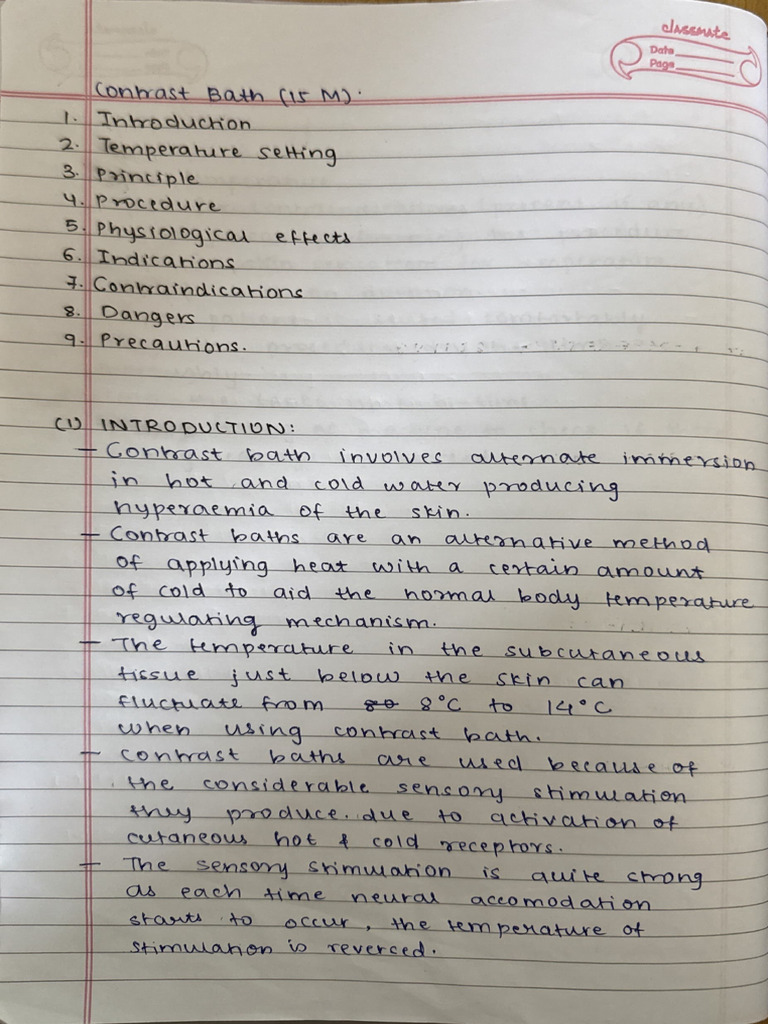 classmate
Date
Page
Contrast Bath (15 M).
1. Introduction
2. Temperature setting
3. Principle
4. Procedure
5. Physiological effects
6. Indications
7. Contraindications
8. Dangers
9. Precautions.
(1) INTRODUCTION:
- Contrast bath involves alternate immersion
in hot and cold water producing
hyperaemia of the skin.
- Contrast baths are an alternative method
of applying heat with a certain amount
of cold to aid the normal body temperature
regulating mechanism.
- The temperature in the subcutaneous
tissue just below the skin can
fluctuate from 8°C to 14°C
when using contrast bath.
- Contrast baths are used because of
the considerable sensory stimulation
they produce. due to activation of
cutaneous hot & cold receptors.
- The sensory stimulation is quite strong
as each time neural accomodation
starts to occur, the temperature of
stimulation is reverced.